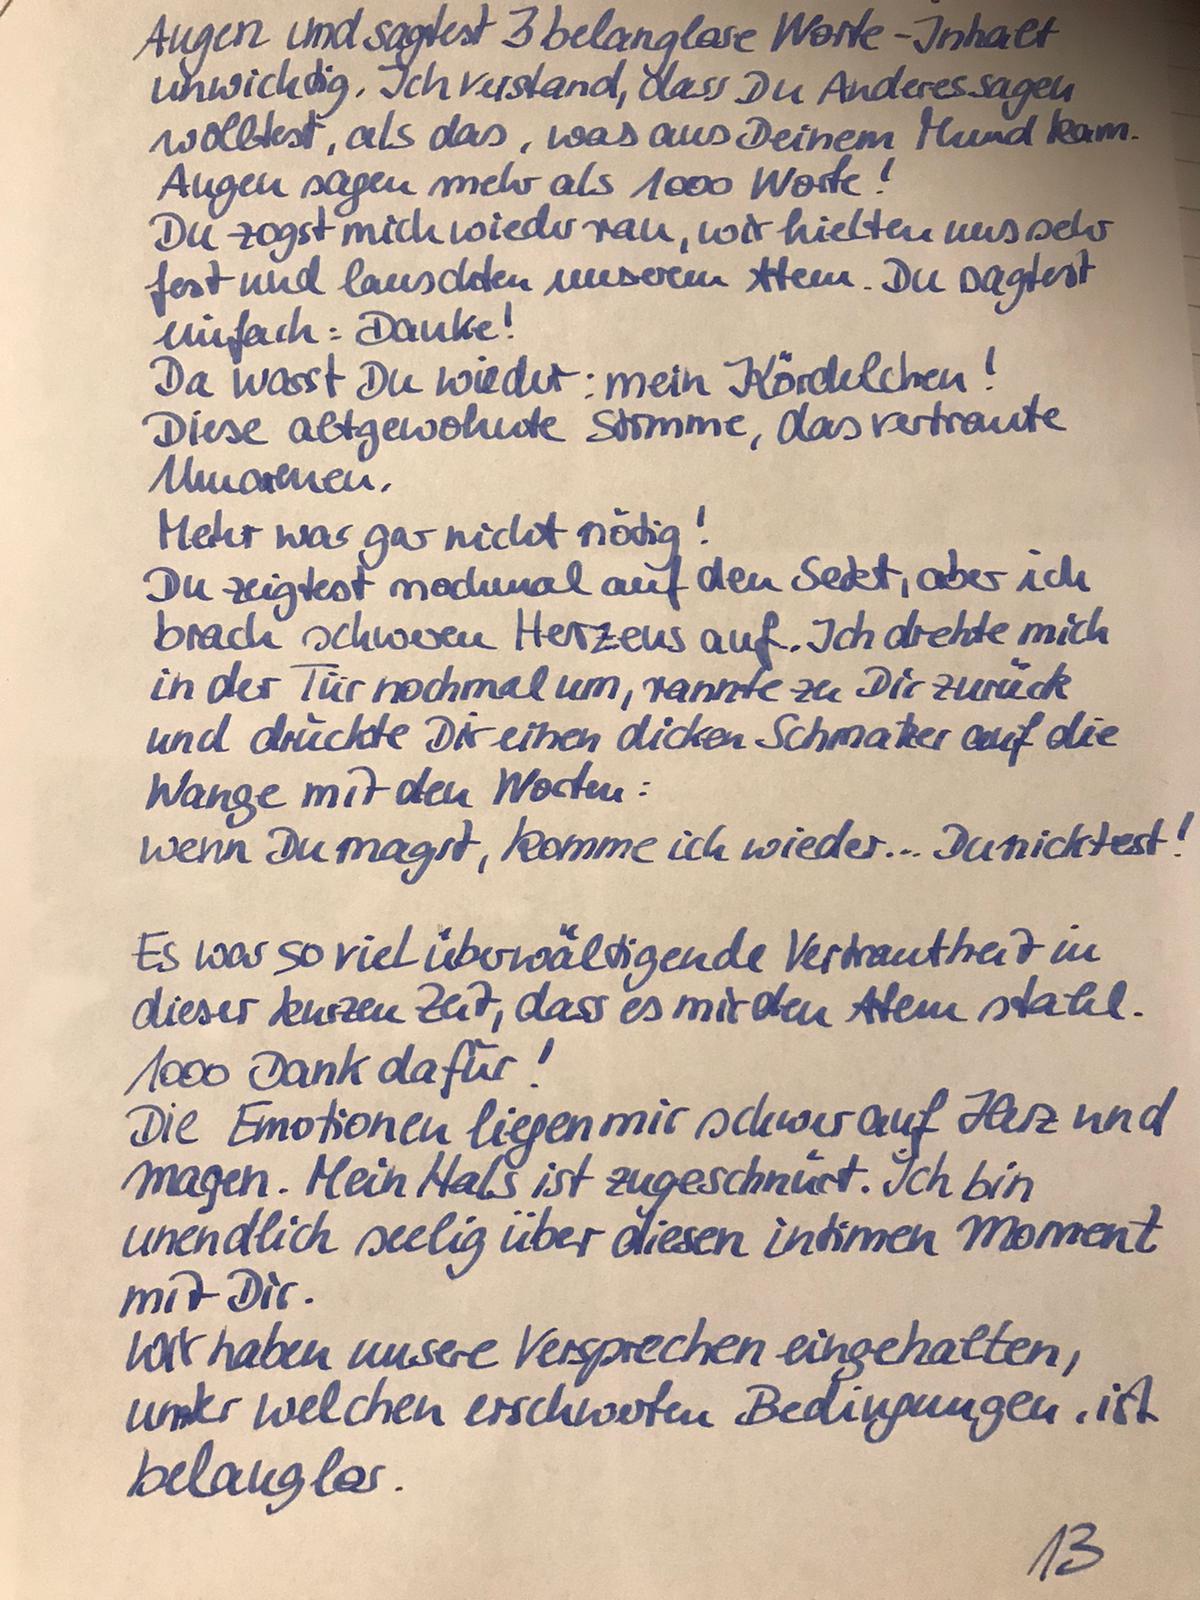 Augen und sagtest 3 belanglose Worte - Inhalt
unwichtig. Ich verstand, dass Du Anderes sagen
wolltest, als das, was aus Deinem Mund kam.
Augen sagen mehr als 1000 Worte!
Du zogst mich wieder ran, wir hielten uns sehr
fest und lauschten unserem Atem. Du sagtest
einfach: Danke!
Da warst Du wieder: mein Kördelchen!
Diese altgewohnte Stimme, das vertraute
Umarmen.
Mehr war gar nicht nötig!
Du zeigtest nochmal auf den Sekt, aber ich
brach schweren Herzens auf. Ich drehte mich
in der Tür nochmal um, rannte zu Dir zurück
und drückte Dir einen dicken Schmatzer auf die
Wange mit den Worten:
wenn Du magst, komme ich wieder... Du nicktest!
Es war so viel überwältigende Vertrautheit in
dieser kurzen Zeit, dass es mir den Atem stahl.
1000 Dank dafür!
Die Emotionen liegen mir schwer auf Herz und
Magen. Mein Hals ist zugeschnürt. Ich bin
unendlich seelig über diesen intimen Moment
mit Dir.
Wir haben unsere Versprechen eingehalten,
unter welchen erschwerten Bedingungen, ist
belanglos.
13